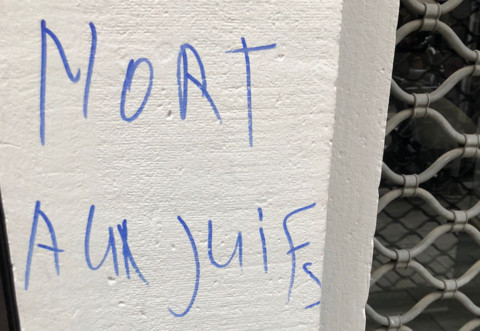 MORT
AUX JUIFS